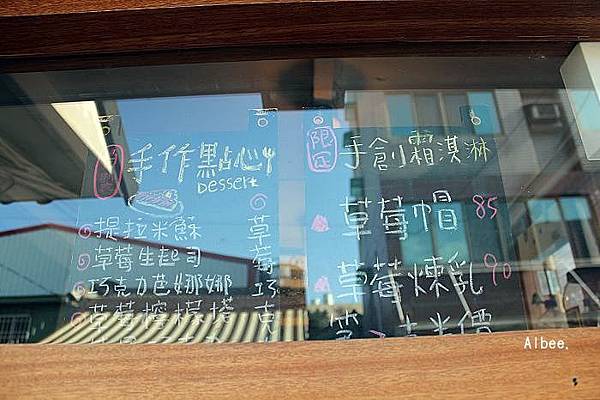 手作點心
Dessert
提拉米蘇
草莓生起司
巧克力芭娜娜
草莓檸檬塔
草
莓
巧
克
限定
手創霜淇淋
草莓帽 85
草莓煉乳 90
Albee.